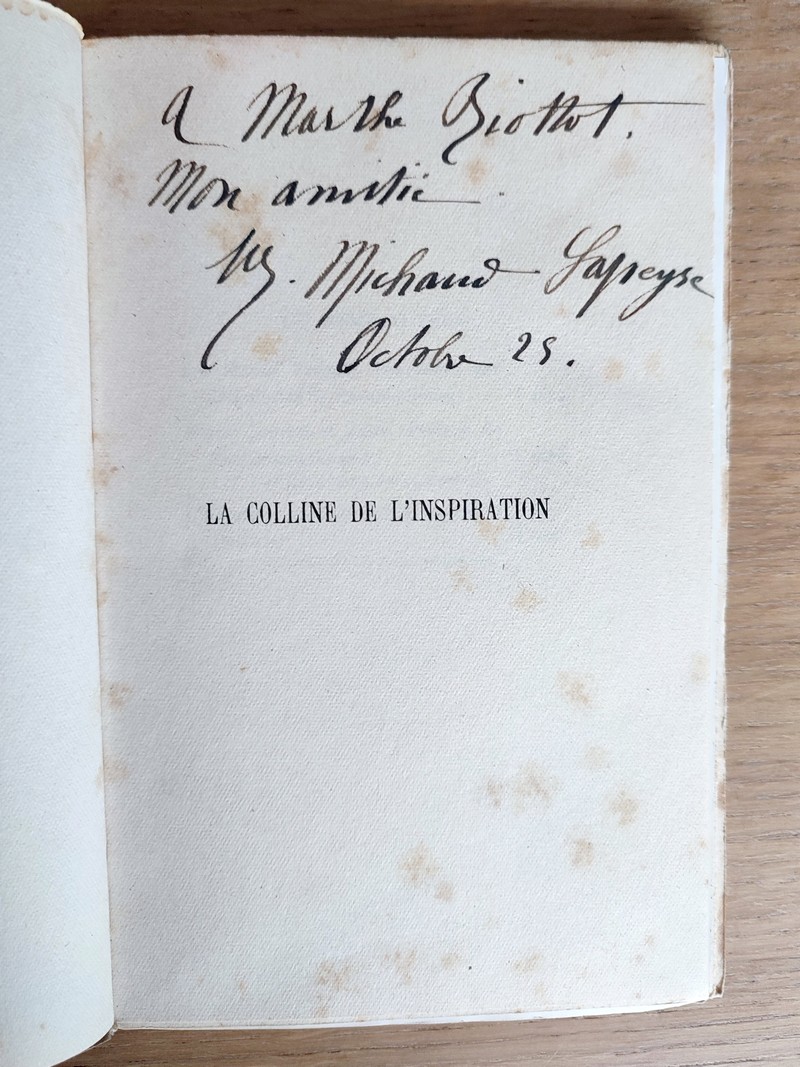 A Marthe Biottot.
Mon amitié.
M. Michaud Lapeyre
Octobre 25.
LA COLLINE DE L'INSPIRATION